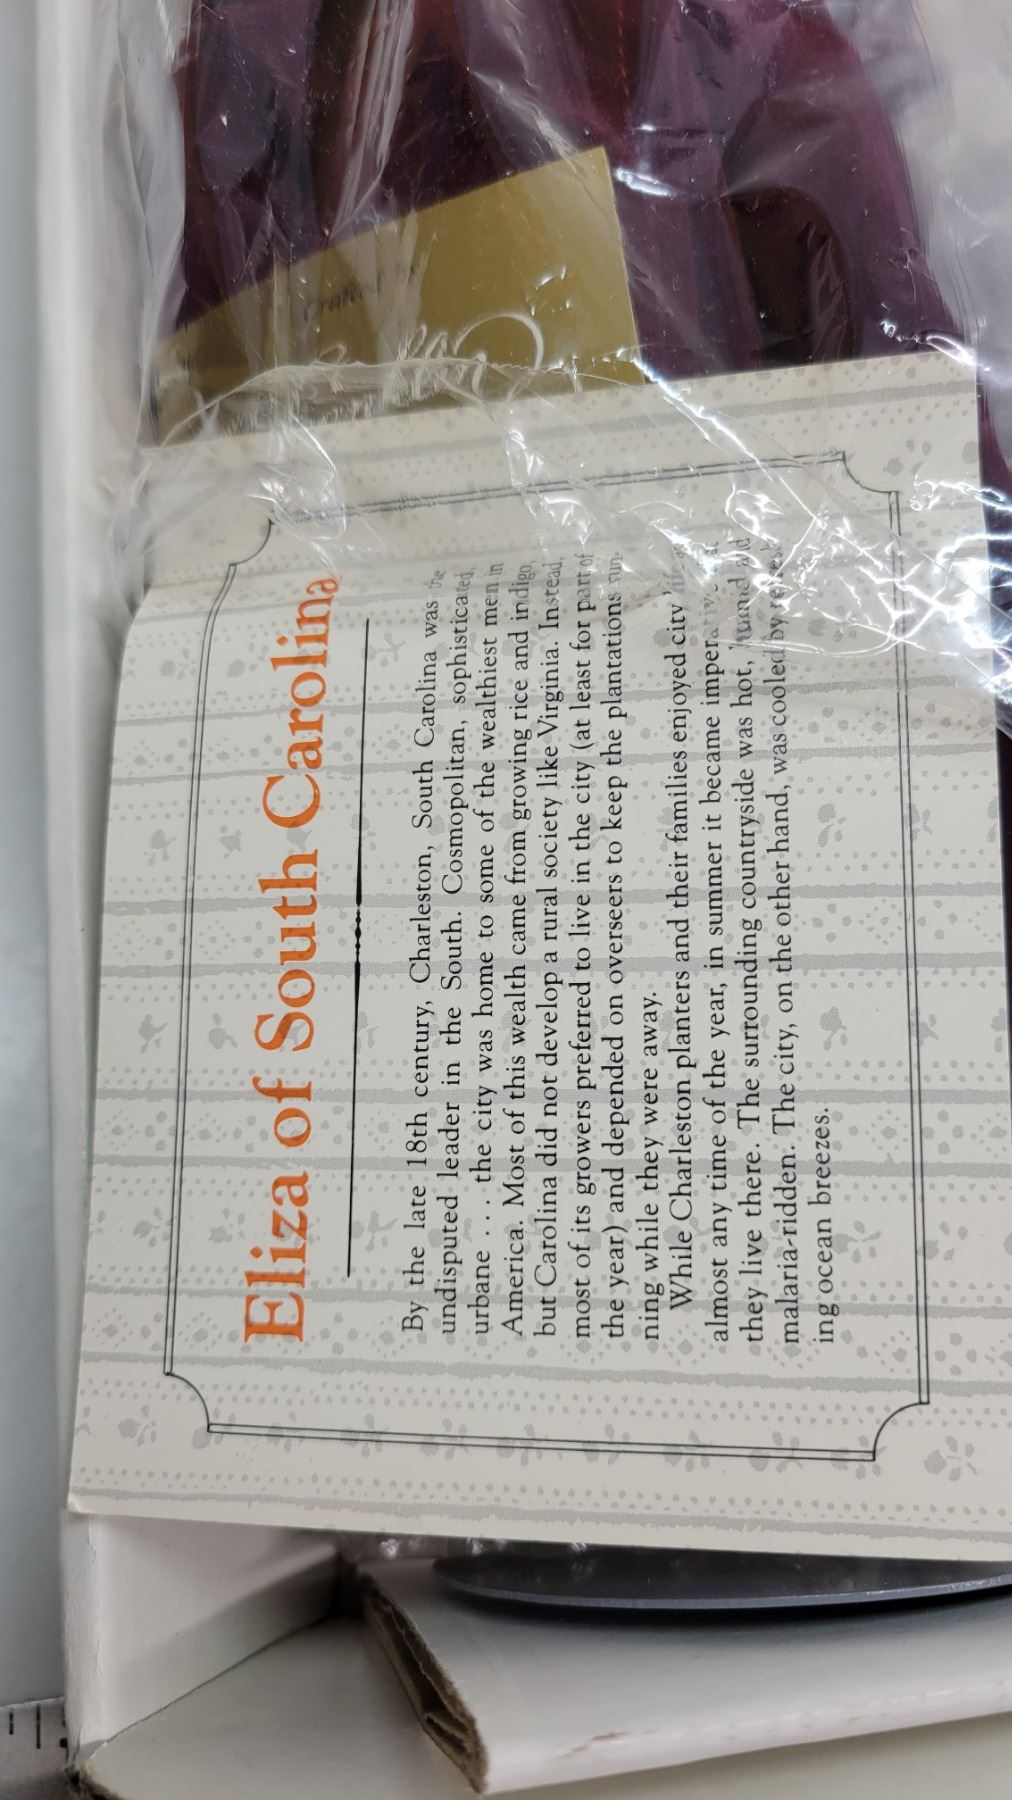 Eliza of South Carolina
By the late 18th century, Charleston, South Carolina was the
undisputed leader in the South. Cosmopolitan, sophisticated,
urbane . . . the city was home to some of the wealthiest men in
America. Most of this wealth came from growing rice and indigo,
but Carolina did not develop a rural society like Virginia. Instead,
most of its growers preferred to live in the city (at least for part of
the year) and depended on overseers to keep the plantations run-
ning while they were away.
While Charleston planters and their families enjoyed city life at
almost any time of the year, in summer it became imperative that
they live there. The surrounding countryside was hot, humid and
malaria-ridden. The city, on the other hand, was cooled by refresh-
ing ocean breezes.
Crafted